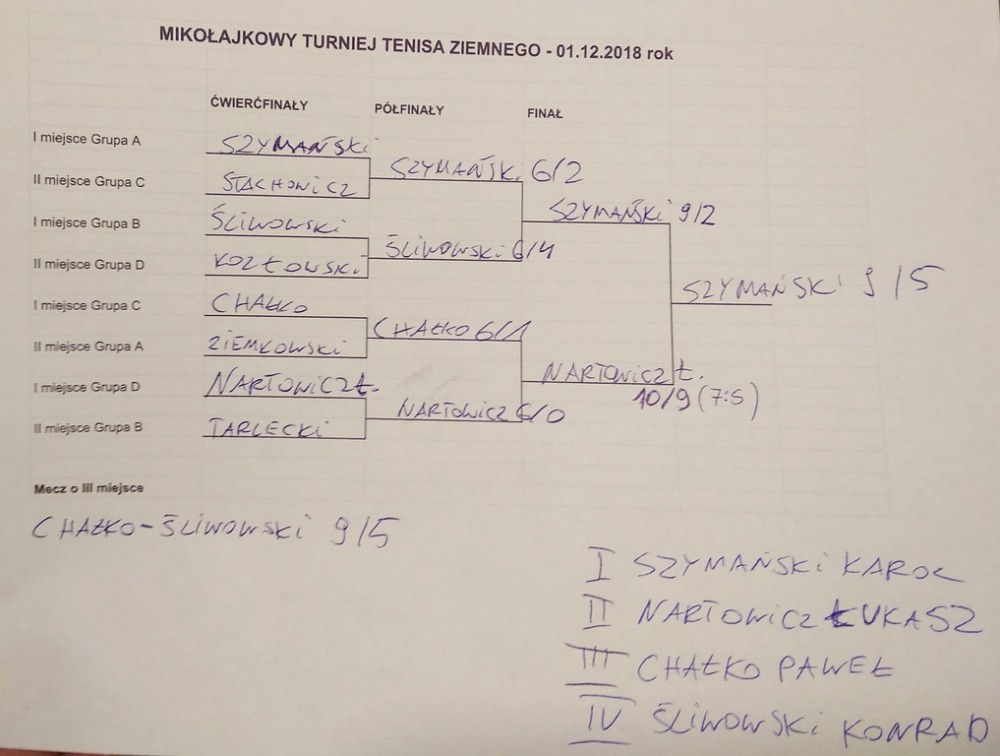 MIKOŁAJKOWY TURNIEJ TENISA ZIEMNEGO - 01.12.2018 rok
ĆWIERĆFINAŁY PÓŁFINAŁY FINAŁ
I miejsce Grupa A SZYMAŃSKi
SZYMAŃSKi 6/2
II miejsce Grupa C STACHOWICZ
SZYMAŃSKi 9/2
I miejsce Grupa B ŚLIWOWSKI
ŚLIWOWSKi 6/4
II miejsce Grupa D KOZŁOWSKi
SZYMAŃSKi 9/5
I miejsce Grupa C CHAŁKO
CHAŁKO 6/1
II miejsce Grupa A ZIEMKOWSKi
NARTOWICZ Ł.
10/9 (7:5)
I miejsce Grupa D NARTOWICZ Ł.
NARTOWICZ 6/0
II miejsce Grupa B TARLECKi
Mecz o III miejsce
CHAŁKO-ŚLIWOWSKi 9/5
I SZYMAŃSKi KAROL
II NARTOWICZ ŁUKASZ
III CHAŁKO PAWEŁ
IV ŚLIWOWSKi KONRAD